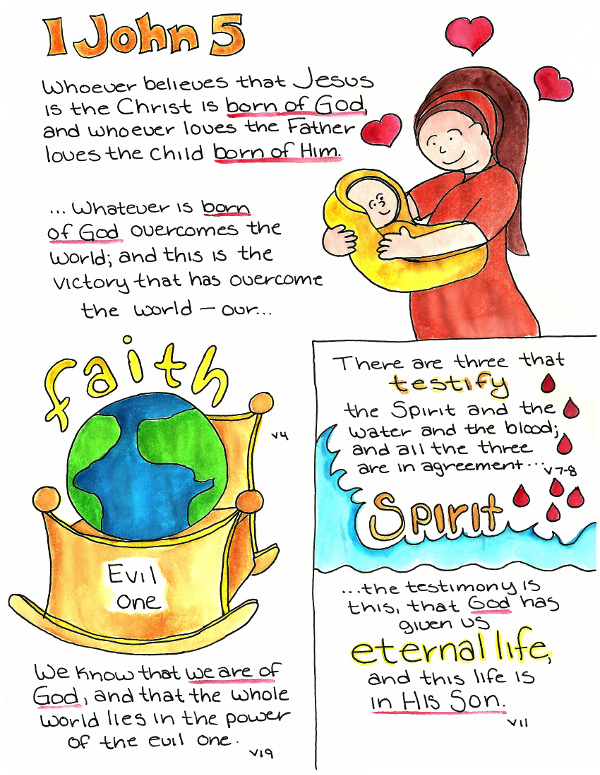 1 John 5
Whoever believes that Jesus
is the Christ is born of God,
and whoever loves the Father
loves the child born of Him.
... Whatever is born
of God overcomes the
world; and this is the
victory that has overcome
the world – our...
faith
v4
Evil
One
We know that we are of
God, and that the whole
world lies in the power
of the evil one.
v19
There are three that
testify
the Spirit and the
water and the blood;
and all the three
are in agreement... v7-8
Spirit
...the testimony is
this, that God has
given us
eternal life,
and this life is
in His Son.
v11